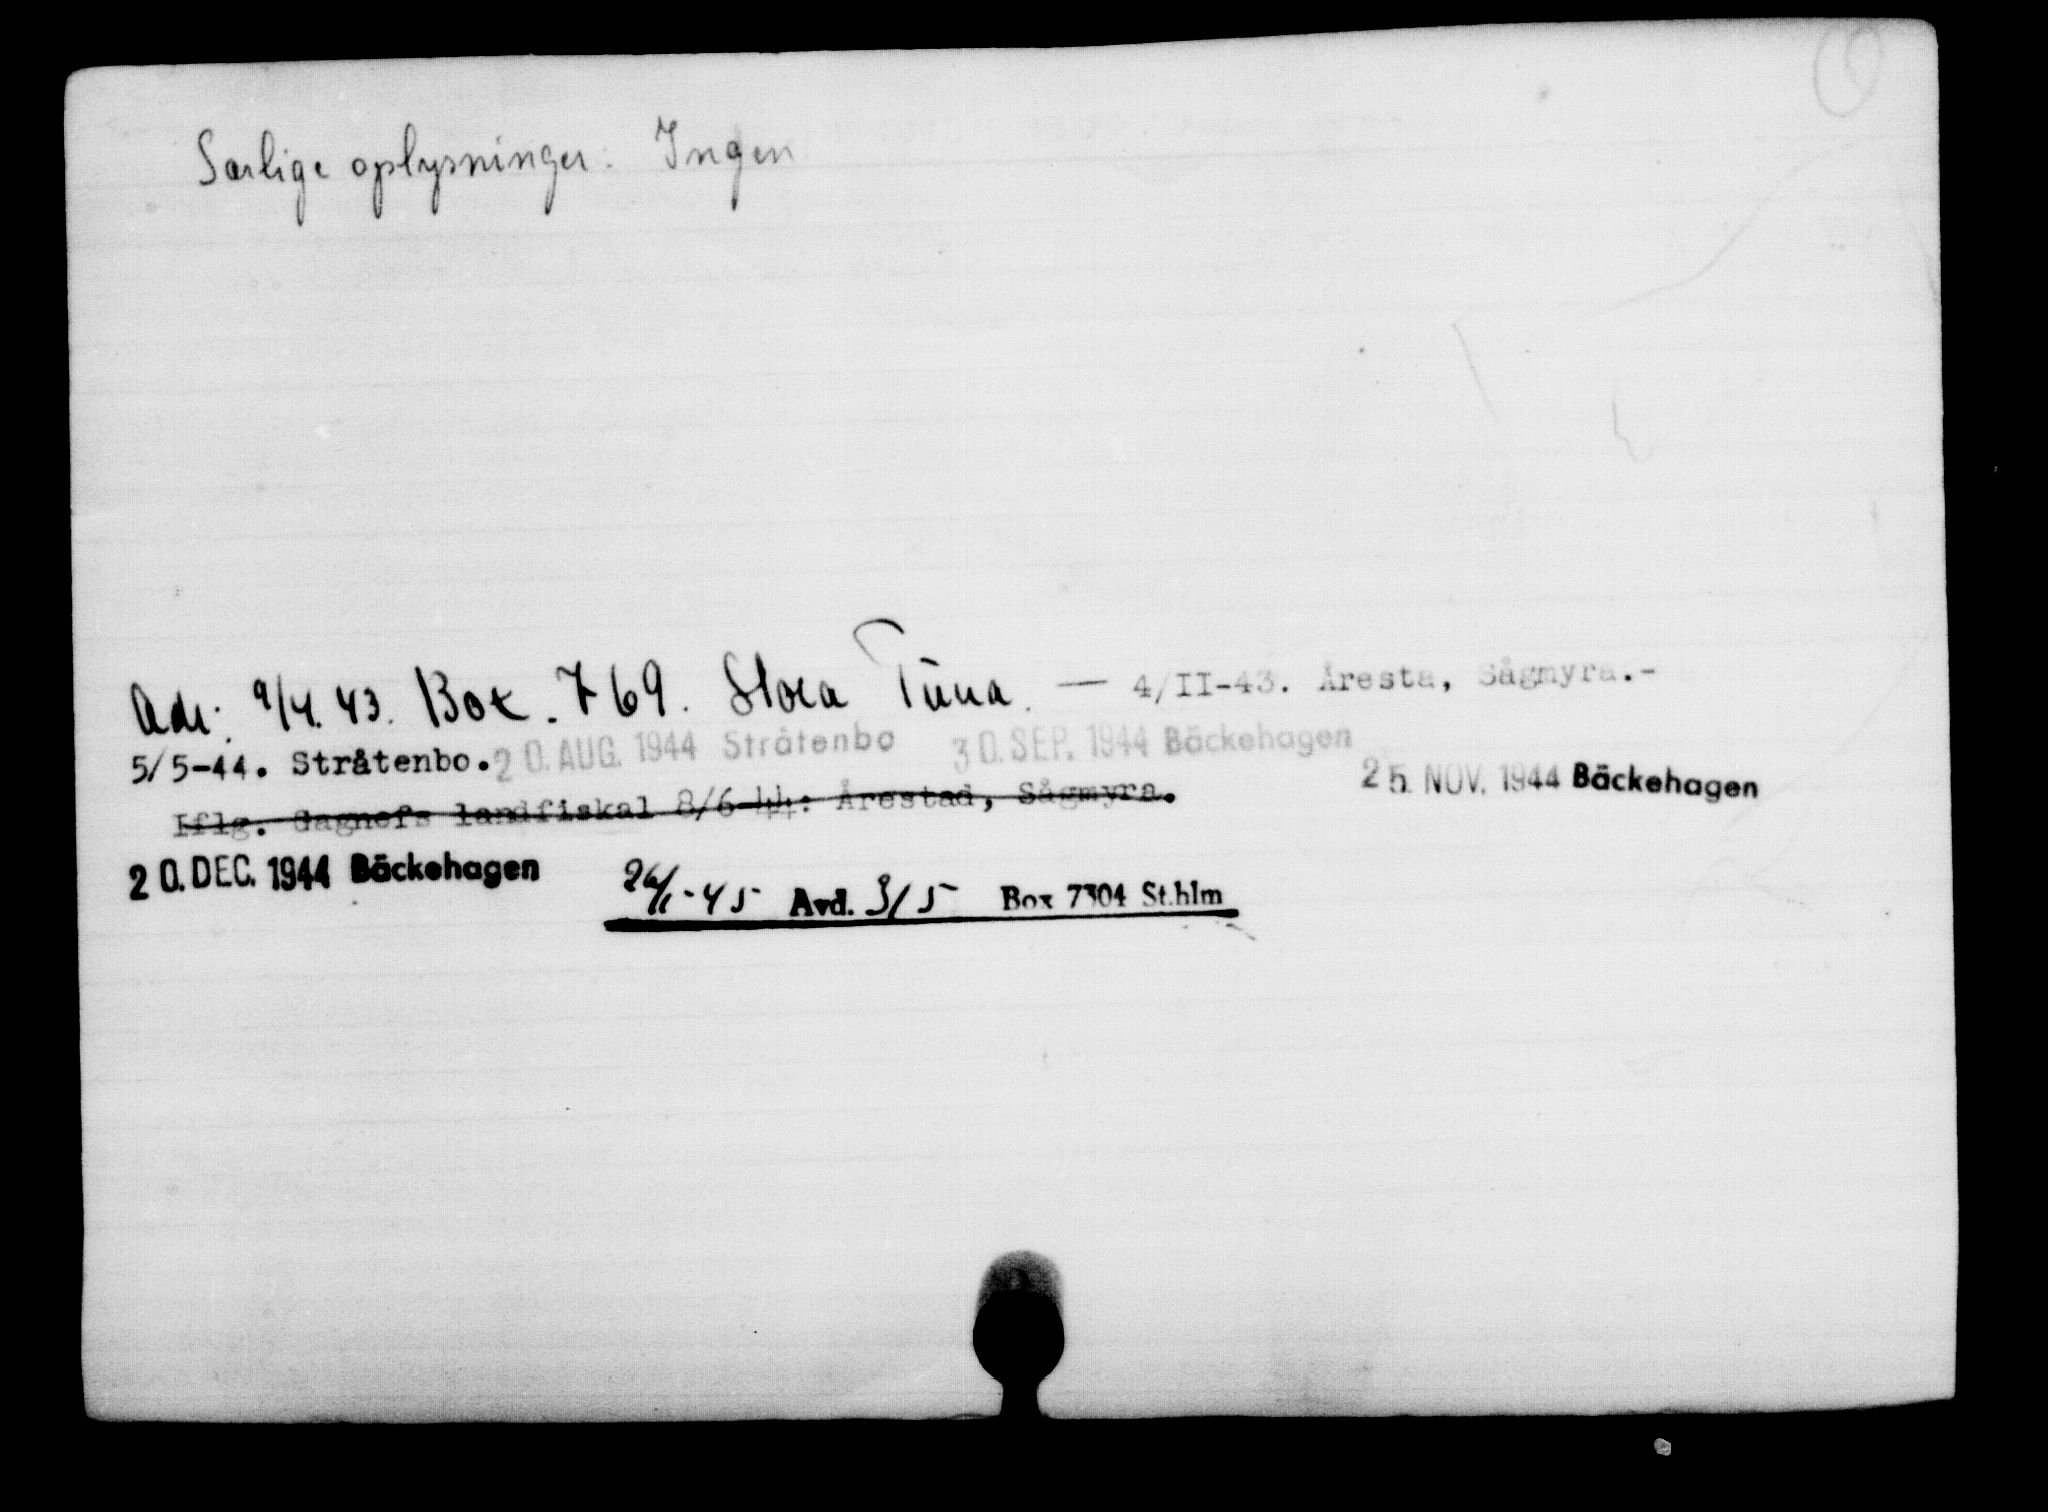 Særlige oplysninger: Ingen
Adr: 9/4. 43. Box. 769. Stora Tuna. — 4/II-43. Åresta, Sågmyra.-
5/5-44. Stråtenbo. 20. AUG. 1944 Stråtenbo 30. SEP. 1944 Bäckehagen
25. NOV. 1944 Bäckehagen
Iflg. Gagnefs landfiskal 8/6-44: Årestad, Sågmyra.
20. DEC. 1944 Bäckehagen 26/1-45 Avd. 3/5 Box 7304 St.hlm